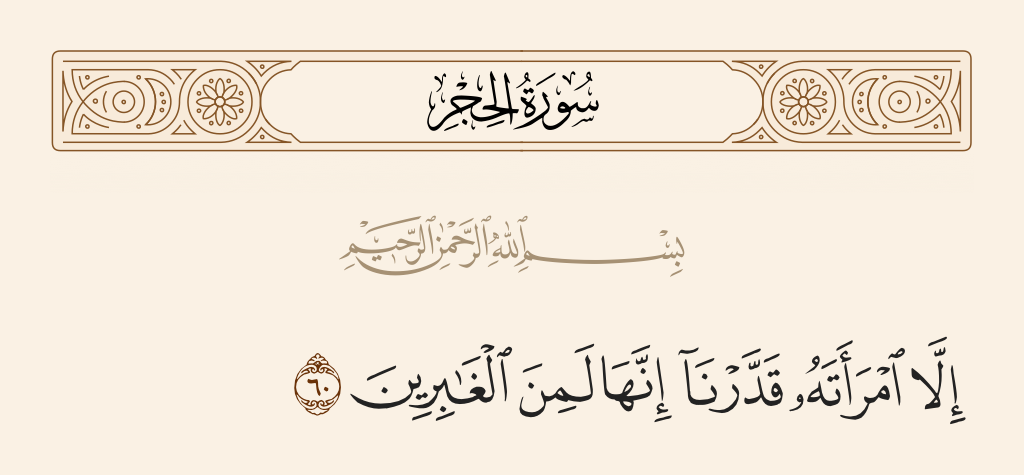 سُورَةُ الحِجْرِ
بِسْمِ ٱللَّهِ ٱلرَّحْمَٰنِ ٱلرَّحِيمِ
إِلَّا ٱمْرَأَتَهُۥ قَدَّرْنَآ إِنَّهَا لَمِنَ ٱلْغَـٰبِرِينَ ٦٠